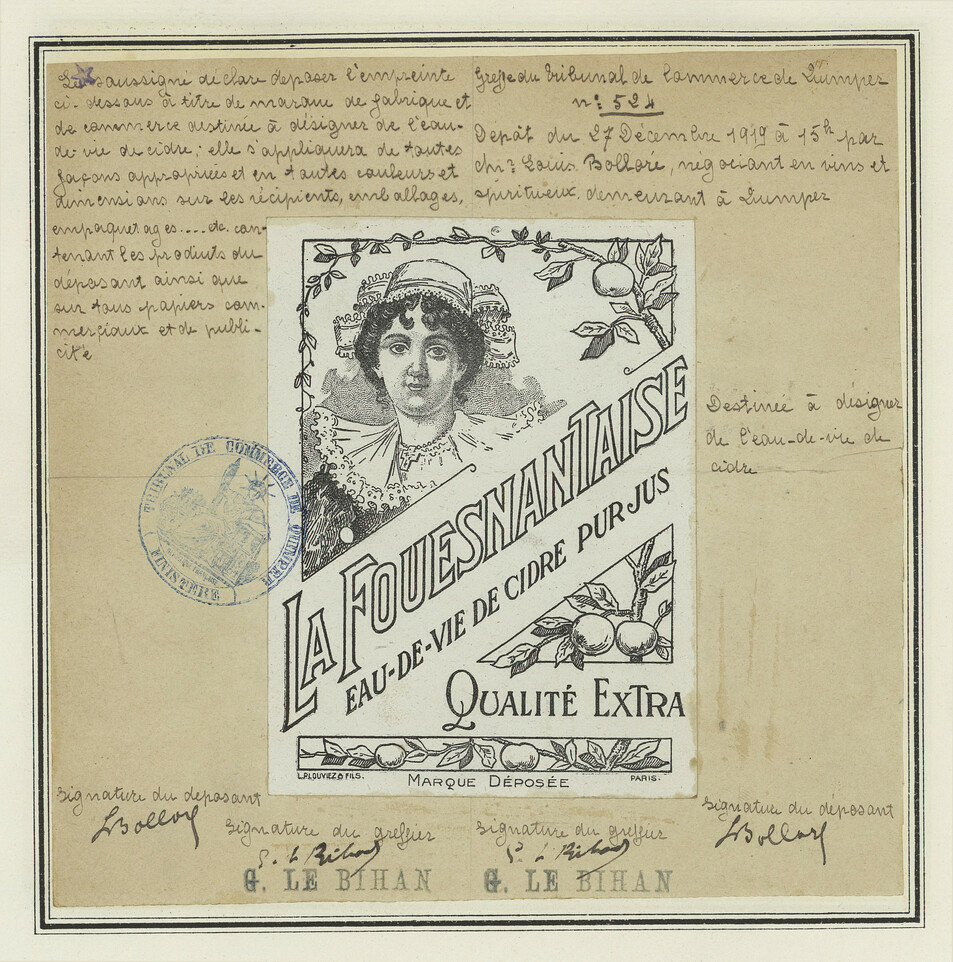 Le Soussigné déclare déposer l'empreinte
ci-dessous à titre de marque de fabrique et
de commerce destinée à désigner de l'eau-
de-vie de cidre; elle s'appliquera de toutes
façons appropriées et en toutes couleurs et
dimensions sur les récipients, emballages,
empaquetages.... etc. con-
tenant les produits du
déposant ainsi que
sur tous papiers com-
merciaux et de publi-
cité
Greffe du Tribunal de Commerce de Quimper
n: 524
Dépôt du 27 Décembre 1919 à 15h par
Louis Bolloré, négociant en vins et
spiritueux demeurant à Quimper
LA FOUESNANTAISE
EAU-DE-VIE DE CIDRE PUR JUS
QUALITÉ EXTRA
L.PLOUVIEZ & FILS. PARIS.
MARQUE DÉPOSÉE
Destinée à désigner
de l'eau-de-vie de
cidre
TRIBUNAL DE COMMERCE DE QUIMPER
FINISTÈRE
Signature du déposant
LBolloré
Signature du greffier
G. Le Bihan
G. LE BIHAN
Signature du greffier
G. Le Bihan
G. LE BIHAN
Signature du déposant
LBolloré